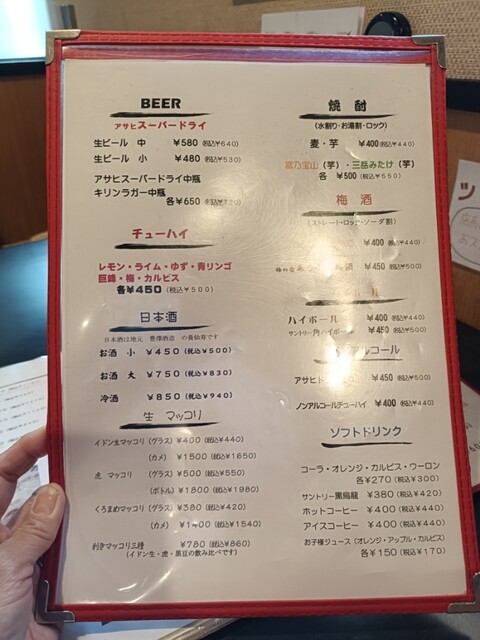 BEER
アサヒスーパードライ
生ビール 中 ￥580(税込￥640)
生ビール 小 ￥480(税込￥530)
アサヒスーパードライ中瓶
キリンラガー中瓶
各￥650(税込￥720)
チューハイ
レモン・ライム・ゆず・青リンゴ
巨峰・梅・カルピス
各￥450(税込￥500)
日本酒
日本酒は地元 豊澤酒造 の貴仙寿です
お酒 小 ￥450(税込￥500)
お酒 大 ￥750(税込￥830)
冷酒 ￥850(税込￥940)
生 マッコリ
イドン生マッコリ (グラス) ￥400(税込￥440)
(カメ) ￥1500(税込￥1650)
虎 マッコリ (グラス) ￥500(税込￥550)
(ボトル) ￥1800(税込￥1980)
くろまめマッコリ (グラス) ￥380(税込￥420)
(カメ) ￥1400(税込￥1540)
利きマッコリ三種 ￥780(税込￥860)
(イドン生・虎・黒豆の飲み比べです)
焼酎
(水割り・お湯割・ロック)
麦・芋 ￥400(税込￥440)
富乃宝山(芋)・三岳みたけ(芋)
各 ￥500(税込￥550)
梅酒
(ストレート・ロック・ソーダ割)
￥400(税込￥440)
￥450(税込￥500)
ル
ハイボール ￥400(税込￥440)
サントリー角ハイボール ￥450(税込￥500)
アルコール
アサヒド ￥450(税込￥500)
ノンアルコールチューハイ ￥400(税込￥440)
ソフトドリンク
コーラ・オレンジ・カルピス・ウーロン
各￥270(税込￥300)
サントリー黒烏龍 ￥380(税込￥420)
ホットコーヒー ￥400(税込￥440)
アイスコーヒー ￥400(税込￥440)
お子様ジュース(オレンジ・アップル・カルピス)
各￥150(税込￥170)
ッ